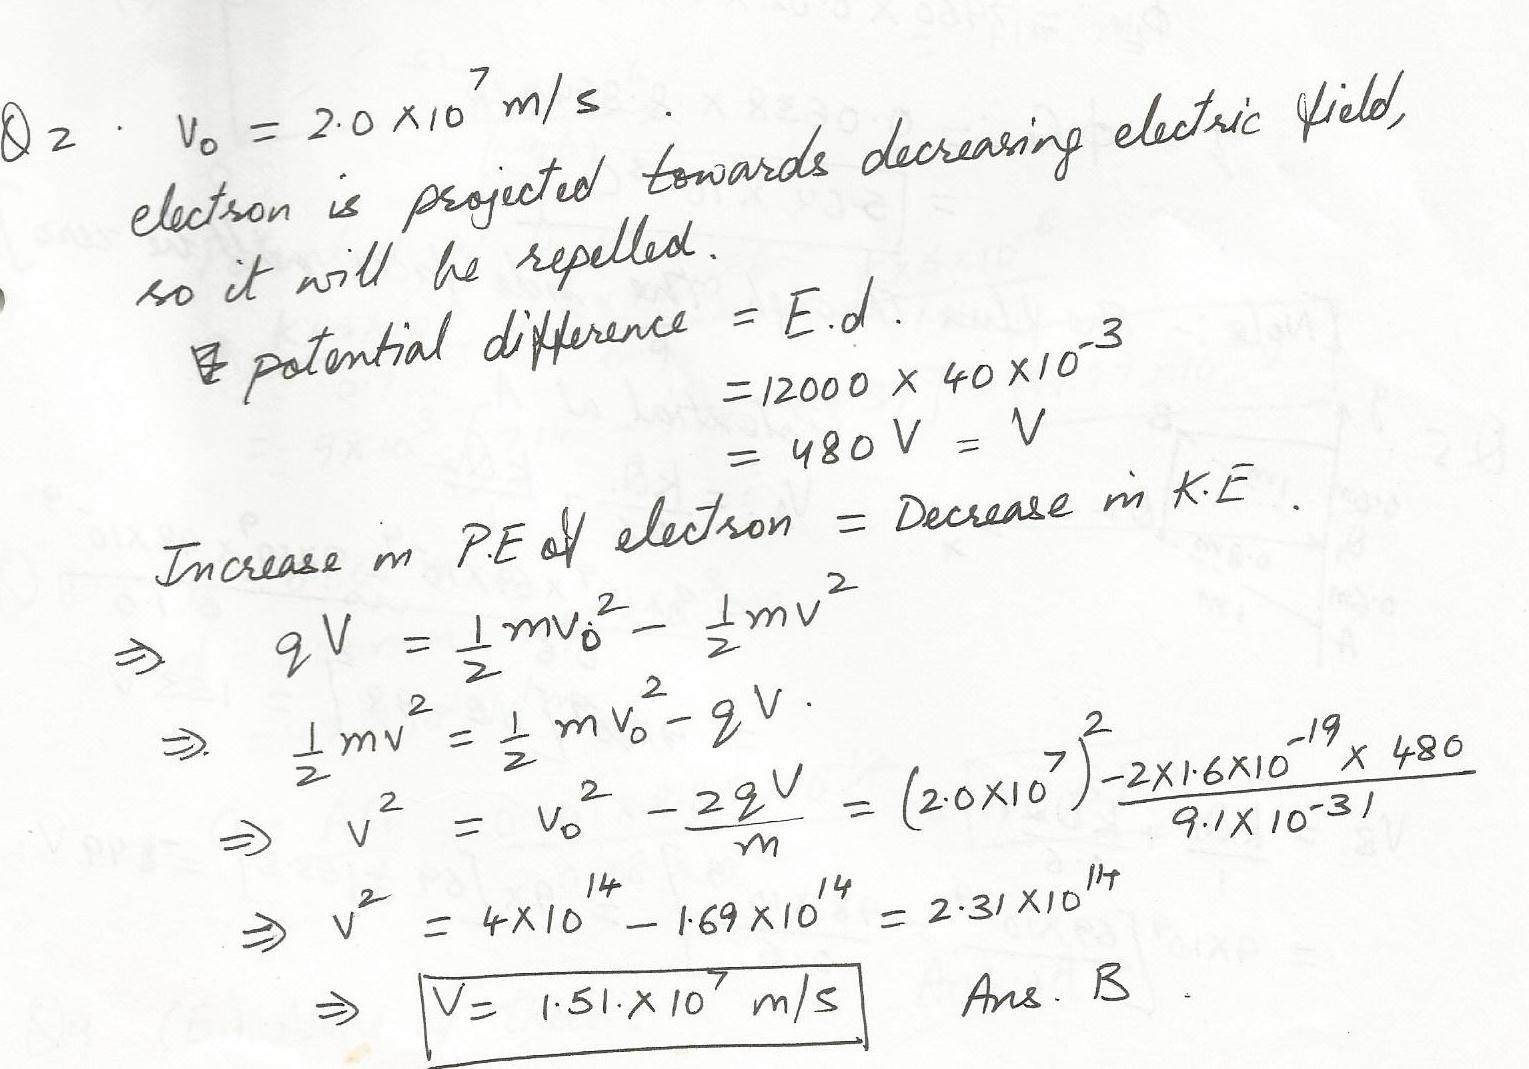 Q2. V₀ = 2.0 × 10⁷ m/s.
electron is projected towards decreasing electric field,
so it will be repelled.
potential difference = E.d.
= 12000 × 40 × 10⁻³
= 480 V = V
Increase in P.E of electron = Decrease in K.E.
⇒ qV = ½mv₀² − ½mv²
⇒ ½mv² = ½mv₀² − qV.
⇒ v² = v₀² − 2qV/m = (2.0×10⁷)² − 2×1.6×10⁻¹⁹ × 480 / 9.1×10⁻³¹
⇒ v² = 4×10¹⁴ − 1.69×10¹⁴ = 2.31×10¹⁴
⇒ V = 1.51.×10⁷ m/s Ans. B.